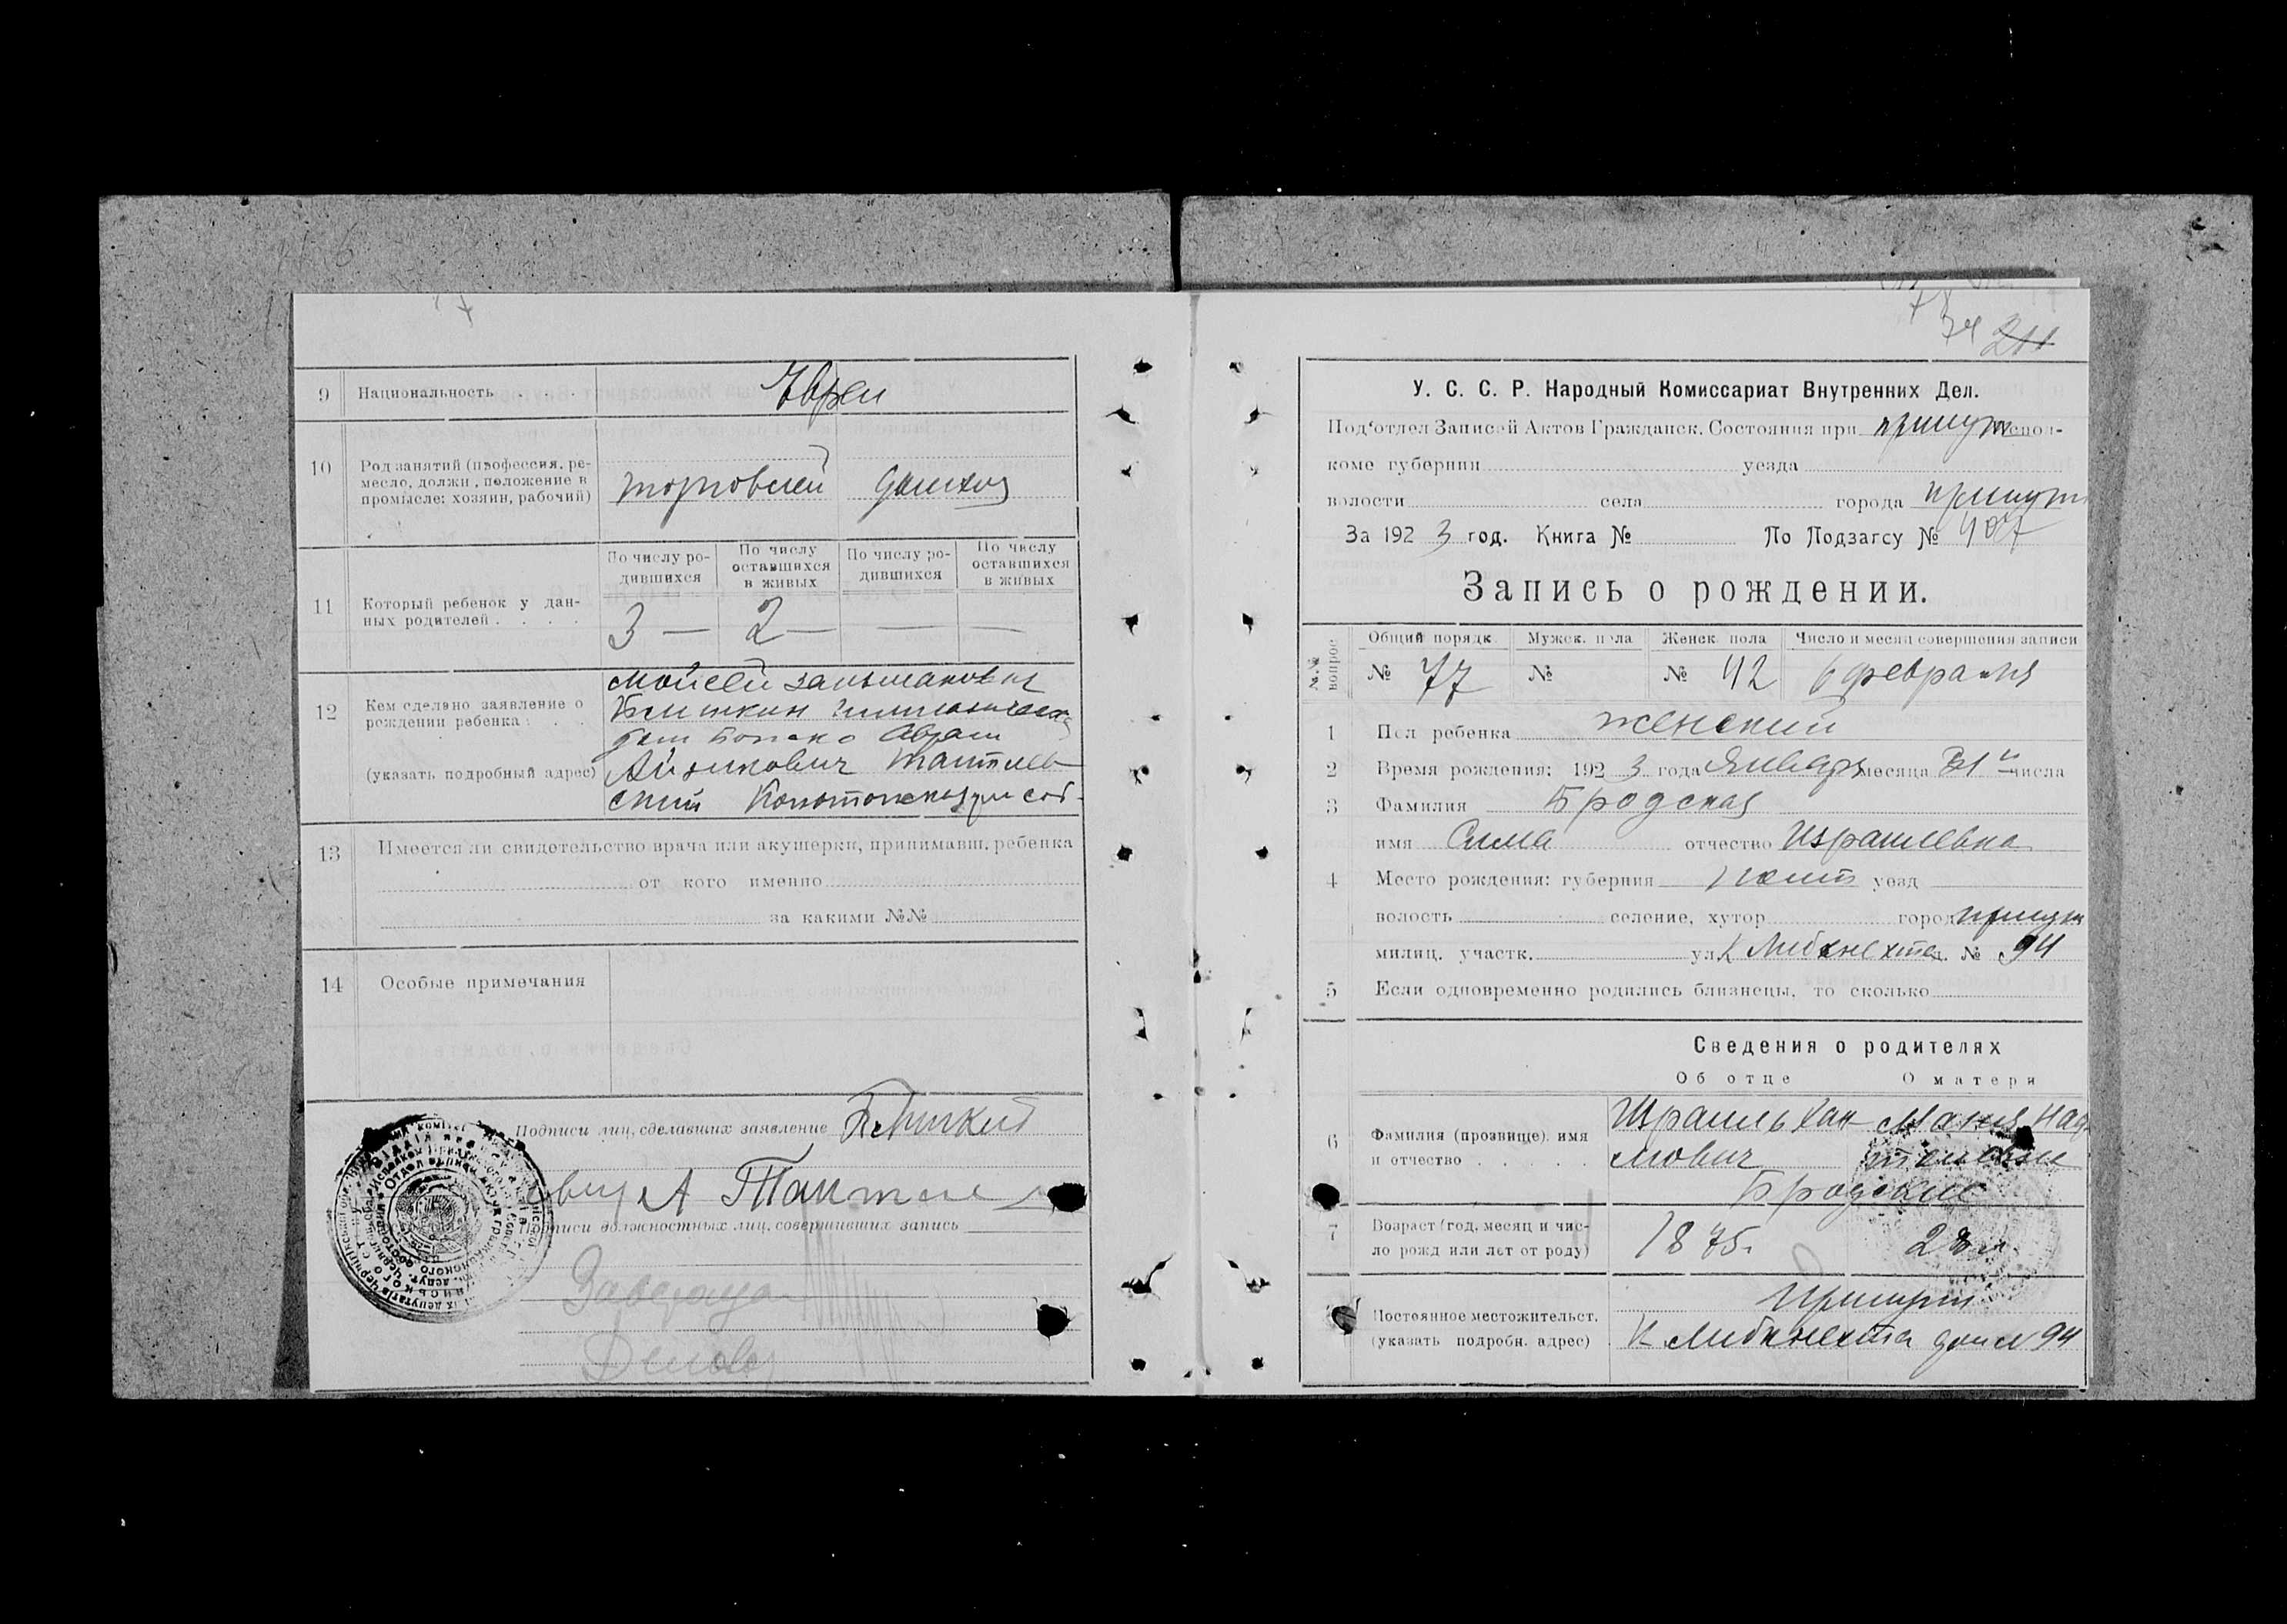 9 Национальность Евреи
10 Род занятий (профессия, ре-
месло, должн., положение в
промысле: хозяин, рабочий)
торговець домхоз
По числу ро-
дившихся
По числу
оставшихся
в живых
По числу ро-
дившихся
По числу
оставшихся
в живых
11 Который ребенок у дан-
ных родителей . . . .
3 — 2 — — —
12 Кем сделано заявление о
рождении ребенка
(указать подробный адрес)
Мойсей Зальманович
Авраам
Айзикович
Конотопская
13 Имеется ли свидетельство врача или акушерки, принимавш. ребенка
от кого именно
за какими №№
14 Особые примечания
Подписи лиц, сделавших заявление
А
Подписи должностных лиц, совершивших запись
211
У. С. С. Р. Народный Комиссариат Внутренних Дел.
Под'отдел Записей Актов Гражданск. Состояния при прилук испол-
коме губернии уезда
волости села города прилук
За 1923 год. Книга № По Подзагсу № 407
Запись о рождении.
№№ вопрос.
Общий порядк. Мужск. пола Женск. пола Число и месяц совершения записи
№ 77 № № 42 6 февраля
1 Пол ребенка женский
2 Время рождения: 1923 года Январь месяца числа
3 Фамилия Бродская
имя Сима отчество Израилевна
4 Место рождения: губерния уезд
волость селение, хутор город прилук
милиц. участк. ул. К Либкнехта д. № 94
5 Если одновременно родились близнецы, то сколько
Сведения о родителях
Об отце О матери
6 Фамилия (прозвище), имя
и отчество . . . . .
Израиль Хаи-
мович
Маня
Бродские
7 Возраст (год, месяц и чис-
ло рожд или лет от роду)
1875. 28 л.
Постоянное местожительст.
(указать подробн. адрес)
Прилуки
К Либкнехта дом № 94